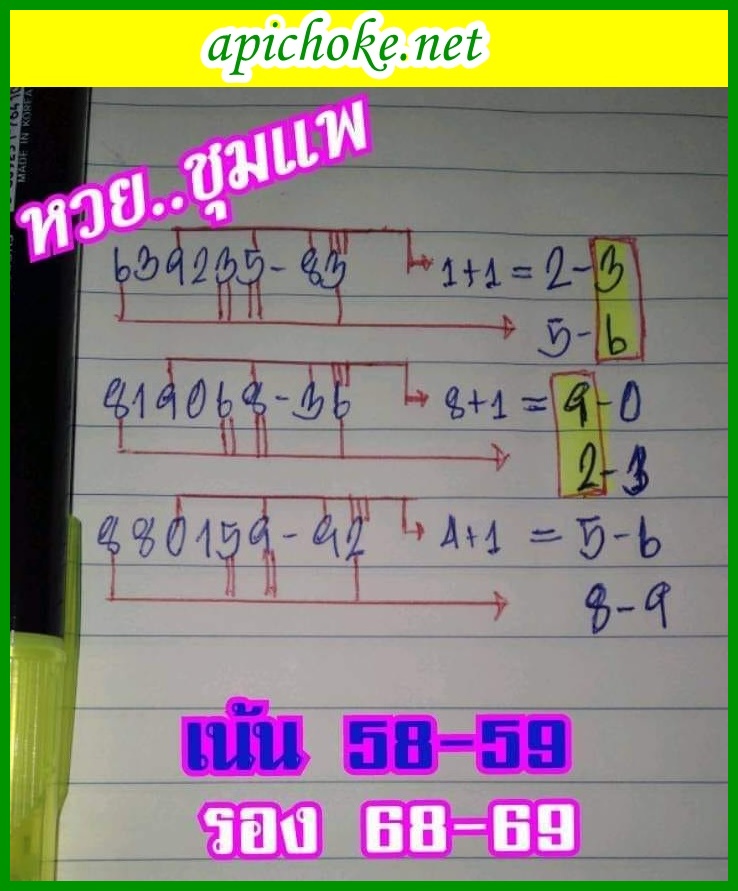 apichoke.net
MADE IN KOREA
หวย..ชุมแพ
639235-83 1+1 = 2-3
5-6
819068-36 8+1 = 9-0
2-3
880159-92 4+1 = 5-6
8-9
เน้น 58-59
รอง 68-69